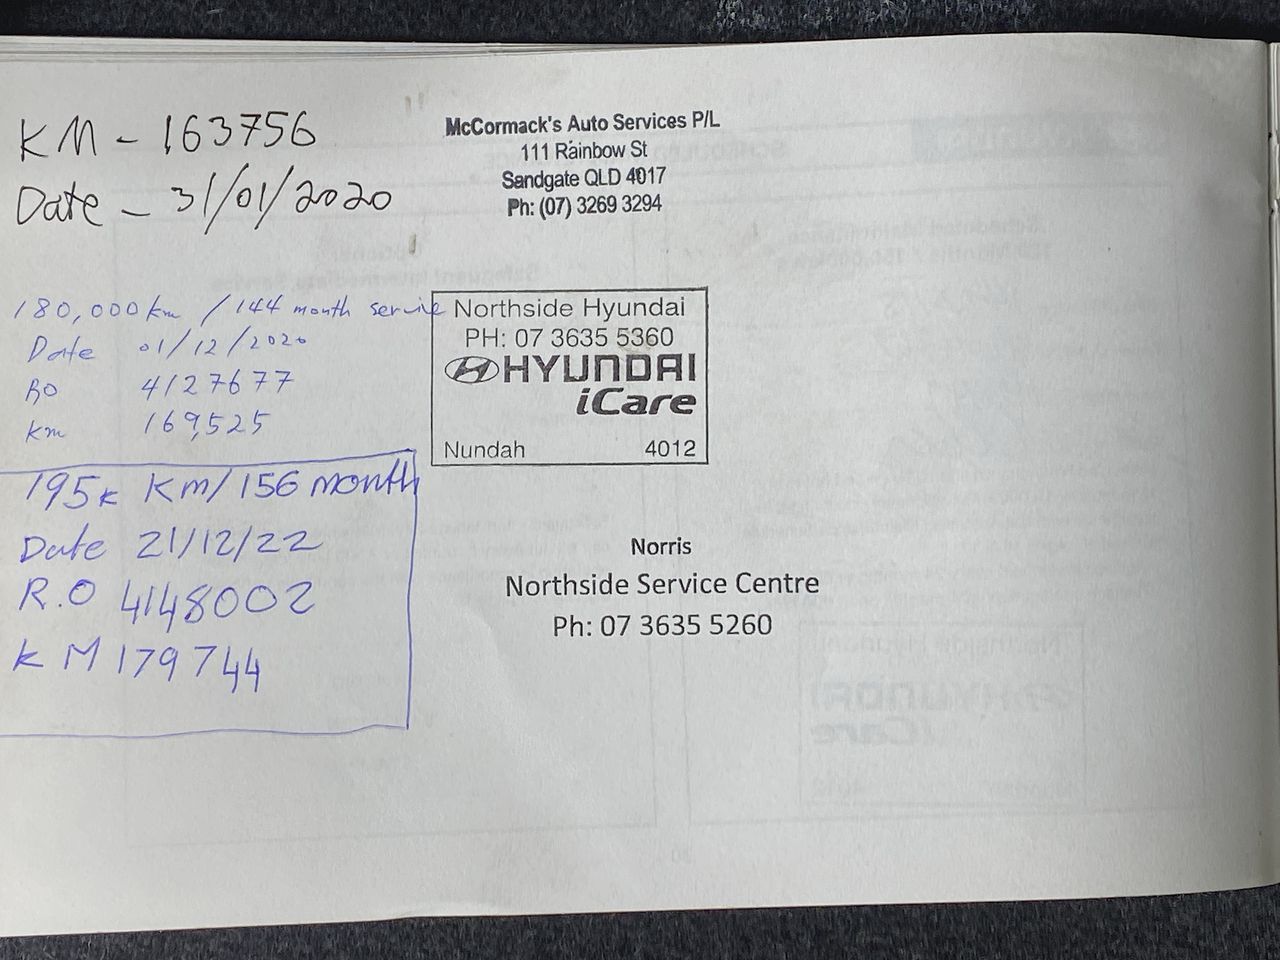 KM - 163756
Date - 31/01/2020
McCormack's Auto Services P/L
111 Rainbow St
Sandgate QLD 4017
Ph: (07) 3269 3294
180,000km / 144 month service
Date 01/12/2020
RO 4127677
km 169,525
Northside Hyundai
PH: 07 3635 5360
HYUNDAI
iCare
Nundah 4012
195k Km/156 month
Date 21/12/22
R.O 4148002
KM 179744
Norris
Northside Service Centre
Ph: 07 3635 5260